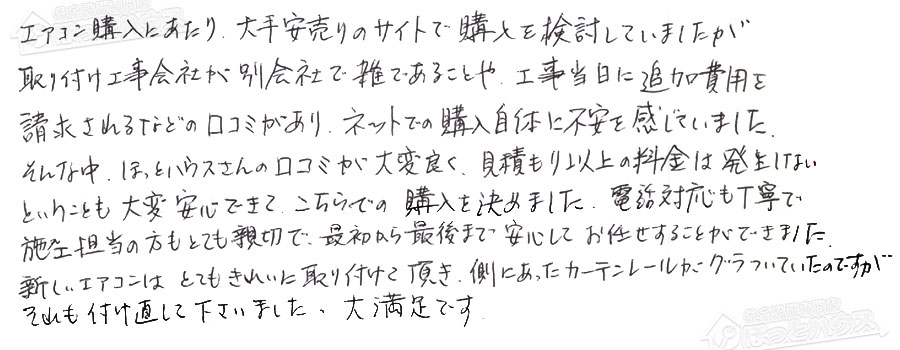 エアコン購入にあたり、大手安売りのサイトで購入を検討していましたが
取り付け工事会社が別会社で雑であることや、工事当日に追加費用を
請求されるなどの口コミがあり、ネットでの購入自体に不安を感じていました。
そんな中、ほっとハウスさんの口コミが大変良く、見積もり以上の料金は発生しない
ということも大変安心できて、こちらでの購入を決めました。電話対応も丁寧で
施工担当の方もとても親切で、最初から最後まで安心してお任せすることができました。
新しいエアコンはとてもきれいに取り付けて頂き、側にあったカーテンレールがグラついていたのですが
それも付け直して下さいました。大満足です。
ほっとハウス